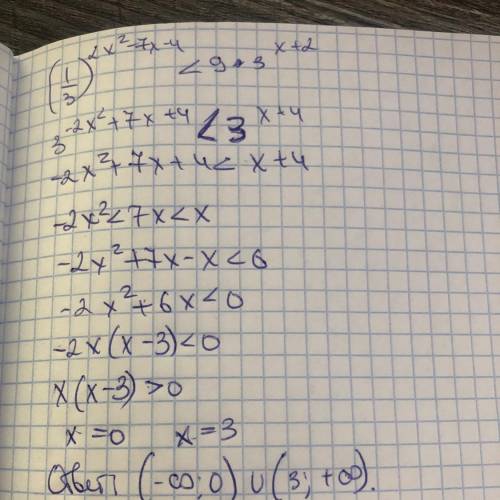 (1/3)^(2x²-7x-4) < 9·3^(x+2)
3^(-2x²+7x+4) < 3^(x+4)
-2x²+7x+4 < x+4
-2x²<7x<x
-2x²+7x-x<6
-2x²+6x<0
-2x(x-3)<0
x(x-3)>0
x=0 x=3
Ответ (-∞;0)∪(3;+∞).